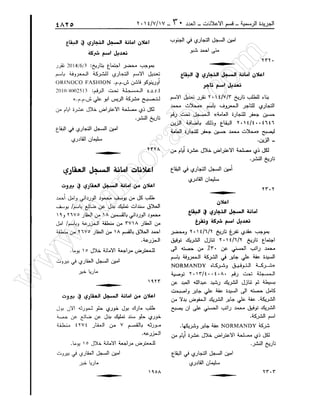 الجريدة الرسمية - قسم الاعلانات - العدد ٣٠ - ٢٠١٤/٧/١٧
٤٨٢٥
امين السجل التجاري في الجنوب
منى احمد شبو
٢٣٢٠
اعلان
أمانة السجل التجاري في البقاع
تعديل اسم تاجر
بناء لطلب تاريخ ٢٠١٤/٧/٣ تقرر تعديل الاسم
التجاري للتاجر المعروف باسم محلات محمد
حسين جعفر التجارة العامة، المسجل تحت رقم
البقاع وذلك باضافة الزين
ليصبح محلات محمد حسين جعفر للتجارة العامة
- الزين.
لكل ذي مصلحة الاعتراض خلال عشرة أيام من
تاريخ النشر.
أمين السجل التجاري في البقاع
سليمان القادري
٢٣٠٢
اعلان
أمانة السجل التجاري في البقاع
تعديل اسم شركة وتفرغ
بموجب عقدي تفرغ تاريخ ٢٠١٤/٦/٢ ومحضر
اجتماع تاريخ ٢٠١٤/٦/٢ تنازل الشريك توفيق
محمد راتب الحسني عن من حصته الى
السيدة عفة علي جابر في الشركة المعروفة باسم
شركة التوفيق وشركاه NORMANDY
المسجلة تحت رقم توصية
بسيطة ثم تنازل الشريك رشيد عبدالله العبد عن
كامل حصته الى السيدة عفة علي جابر واصبحت
الشريكة عفة علي جابر الشريك المفوض بدلا من
الشريك توفيق محمد راتب الحسني على ان يصبح
اسم الشركة:
شركة NORMANDY عفة جابر وشريكها.
لكل ذي مصلحة الاعتراض خلال عشرة أيام من
تاريخ النشر.
امين السجل التجاري في البقاع
سليمان القادري
٢٣٠٣
اعلان امانة السجل التجاري في البقاع
تعديل اسم شركة
بموجب محضر اجتماع بتاريخ: 2014/6/5 تقرر
تعديل الاسم التجاري للشركة المعروفة باسم
أورينوكو فاشن ش.م.م. ORINOCO FASHION
المسجلة تحت الرقم: 2010/4002513
لتصبح مشركة الريس ابو علي ش.م.م.
لكل ذي مصلحة الاعتراض خلال عشرة ايام من
تاريخ النشر.
امين السجل التجاري في البقاع
سليمان القادري
٢٢٧٨
اعلانات أمانة السجل العقاري
اعلان من أمانة السجل العقاري في بيروت
طلب كل من يوسف محمود الورداني وامل أحمد
الحلاق سندات تمليك بدل عن ضائع باسم/ يوسف
محمود الورداني بالقسمين ١٨ من العقار ٢٦٧٧ و١٩
من العقار ٣٧١٨ من منطقة المزرعة وباسم/ امل
احمد الحلاق بالقسم ١٨ من العقار ٢٦٧٧ من منطقة
المزرعة.
للمعترض مراجعة الامانة خلال ١٥ يوما.
امين السجل العقاري في بيروت
ماريا خير
١٩٢٣
اعلان من امانة السجل العقاري في بيروت
طلب مارك بول خوري حلو لمورثه الان بول
خوري حلو سند تمليك بدل عن ضائع عن حصة
مورثه بالقسم ٧ من العقار ٤٧٤ منطقة
المزرعة.
للمعترض مراجعة الامانة خلال ١٥ يوما.
امين السجل العقاري في بيروت
ماريا خير
١٩٨٨